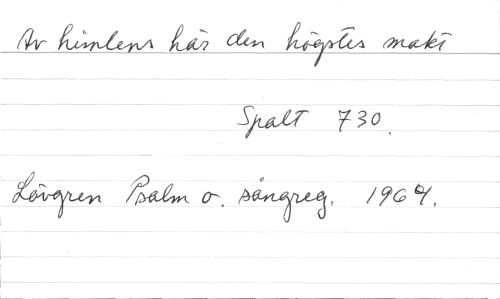 Av himlens här den högstes makt
Spalt 730.
Lövgren Psalm o. sångreg. 1964.